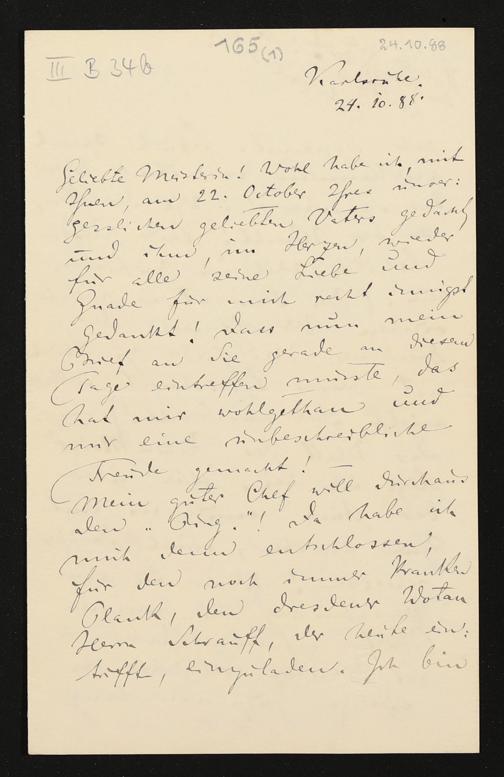 III B 34b
165 (1)
24.10.88
Karlsruhe.
24. 10. 88.
Geliebte Meisterin! Wohl habe ich, mit
Ihnen, am 22. October Ihres unver:
gesslichen geliebten Vaters gedacht
und ihm, im Herzen, wieder
für alle seine Liebe und
Gnade für mich recht innigst
gedankt! Dass nun mein
Brief an Sie gerade an diesem
Tage eintreffen musste, das
hat mir wohlgethan und
mir eine unbeschreibliche
Freude gemacht! —
Mein guter Chef will durchaus
den „Ring."! Da habe ich
mich denn entschlossen,
für den noch immer kranken
Plank, den dresdener Wotan
Herrn Schrauff, der heute ein:
trifft, einzuladen. Ich bin